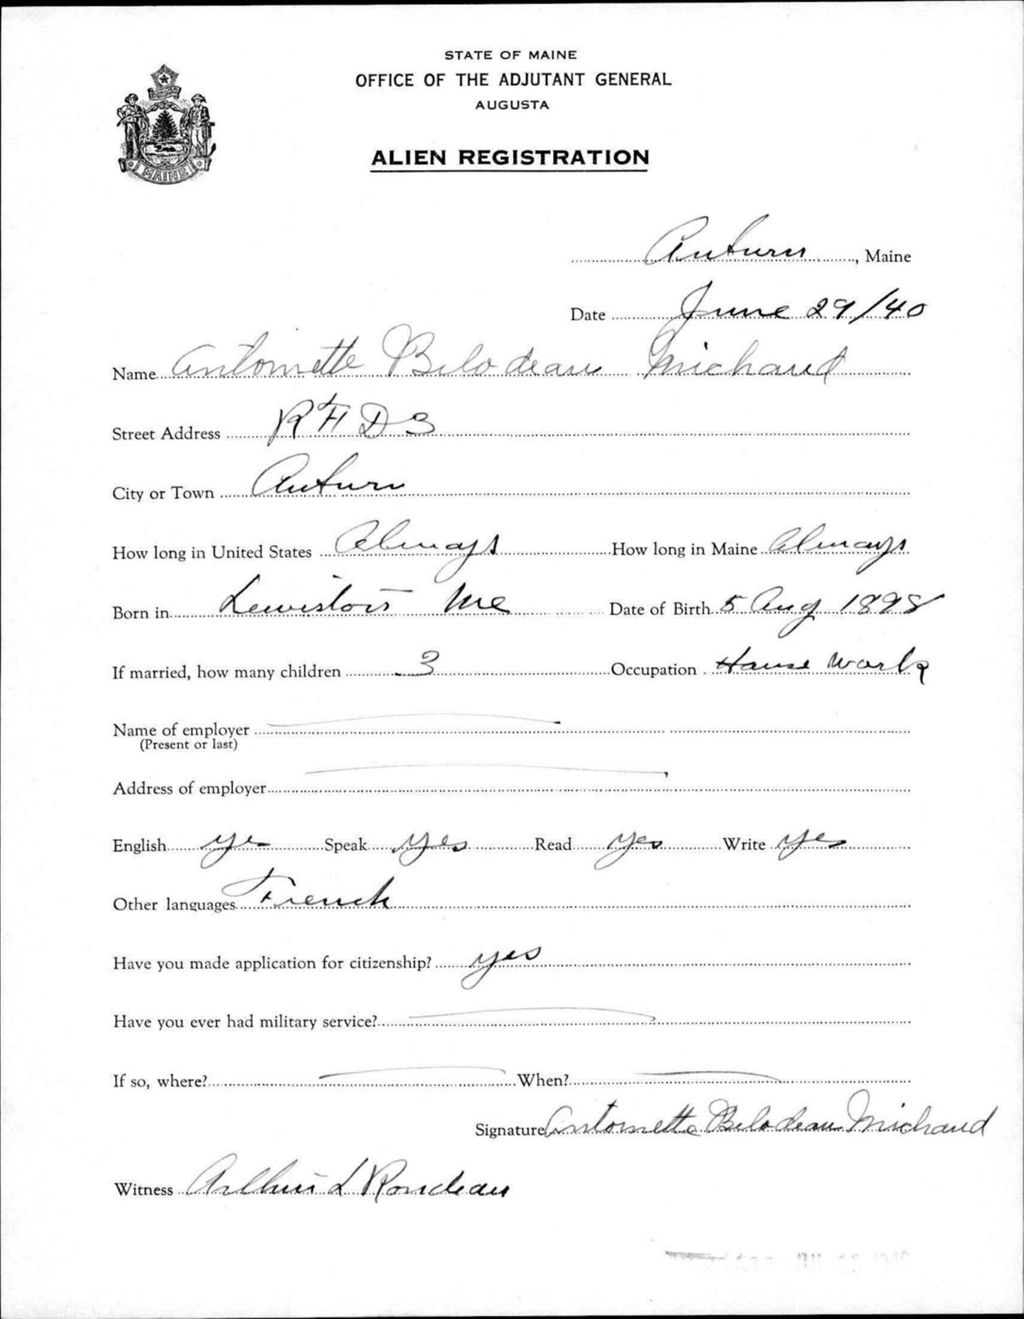 STATE OF MAINE
OFFICE OF THE ADJUTANT GENERAL
AUGUSTA
MAINE
ALIEN REGISTRATION
Auburn, Maine
Date June 29/40
Name Antoinette Bilodeau Michaud
Street Address RFD 3
City or Town Auburn
How long in United States Always How long in Maine Always
Born in Lewiston Me Date of Birth 5 Aug 1898
If married, how many children 3 Occupation House Work
Name of employer
(Present or last)
Address of employer
English yes Speak yes Read yes Write yes
Other languages French
Have you made application for citizenship? yes
Have you ever had military service?
If so, where? When?
Signature Antoinette Bilodeau Michaud
Witness Arthur L Rondeau